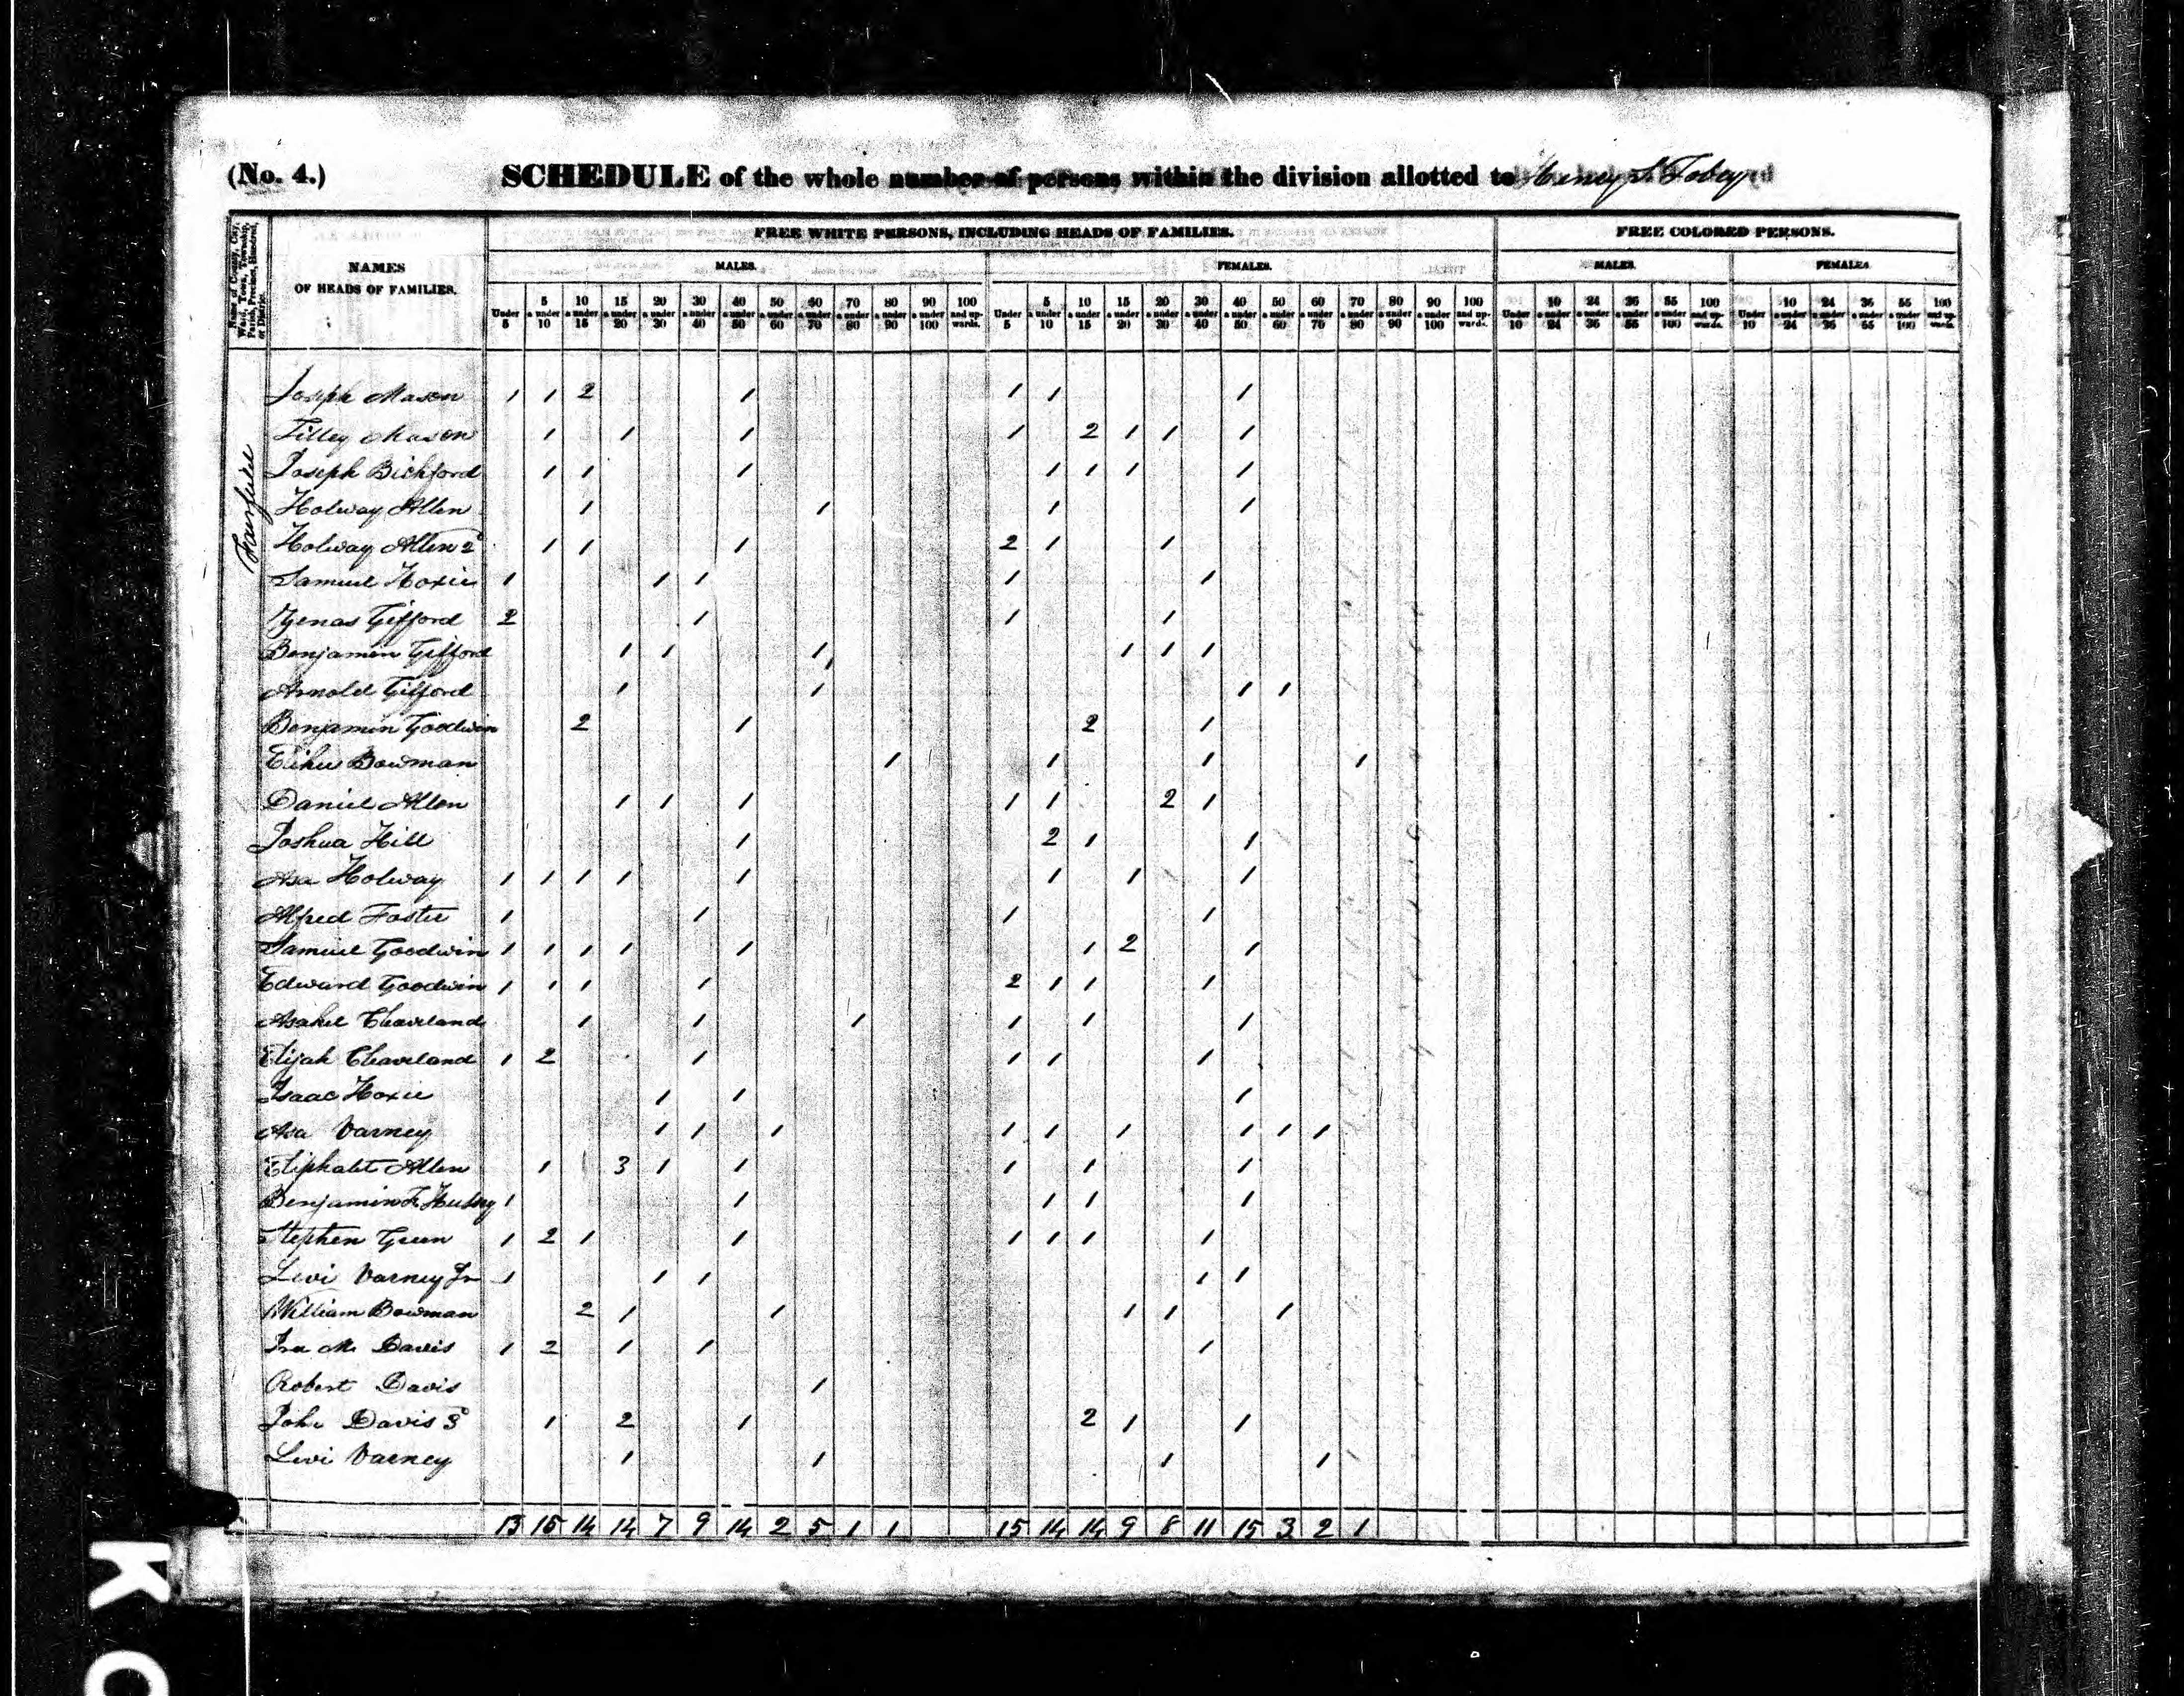 (No. 4.) SCHEDULE of the whole number of persons within the division allotted to Henry S. Tobey
Name of County, City, Ward, Town, Township, Parish, Precinct, Hundred, or District.
NAMES OF HEADS OF FAMILIES.
FREE WHITE PERSONS, INCLUDING HEADS OF FAMILIES.
FREE COLORED PERSONS.
MALES. FEMALES. MALES. FEMALES.
Under 5 5 & under 10 10 & under 15 15 & under 20 20 & under 30 30 & under 40 40 & under 50 50 & under 60 60 & under 70 70 & under 80 80 & under 90 90 & under 100 100 and upwards. Under 5 5 & under 10 10 & under 15 15 & under 20 20 & under 30 30 & under 40 40 & under 50 50 & under 60 60 & under 70 70 & under 80 80 & under 90 90 & under 100 100 and upwards. Under 10 10 & under 24 24 & under 36 36 & under 55 55 & under 100 100 and upwards. Under 10 10 & under 24 24 & under 36 36 & under 55 55 & under 100 100 and upwards.
Fairfield
Joseph Mason 1 1 2 1 1 1 1
Tilley Mason 1 1 1 1 2 1 1 1
Joseph Bickford 1 1 1 1 1 1 1
Holway Allen 1 1 1 1
Holway Allen 2d 1 1 1 2 1 1
Samuel Hoxie 1 1 1 1 1
Zenas Gifford 2 1 1 1
Benjamin Gifford 1 1 1 1 1 1
Arnold Gifford 1 1 1 1
Benjamin Goodwin 2 1 2 1
Elihu Bowman 1 1 1 1
Daniel Allen 1 1 1 1 1 2 1
Joshua Hill 1 2 1 1
Asa Holway 1 1 1 1 1 1 1 1
Alfred Foster 1 1 1 1
Samuel Goodwin 1 1 1 1 1 1 2 1
Edward Goodwin 1 1 1 1 2 1 1 1
Asahel Cleaveland 1 1 1 1 1 1
Elijah Cleaveland 1 2 1 1 1 1
Isaac Hoxie 1 1 1
Asa Varney 1 1 1 1 1 1 1 1 1
Eliphalet Allen 1 3 1 1 1 1 1
Benjamin F. Hussey 1 1 1 1 1
Stephen Green 1 2 1 1 1 1 1 1
Levi Varney Jr 1 1 1 1 1
William Bowman 2 1 1 1 1 1
Ira M. Davis 1 2 1 1 1
Robert Davis 1
John Davis 3d 1 2 1 2 1 1
Levi Varney 1 1 1 1
13 15 14 14 7 9 14 2 5 1 1 15 14 14 9 8 11 15 3 2 1
K